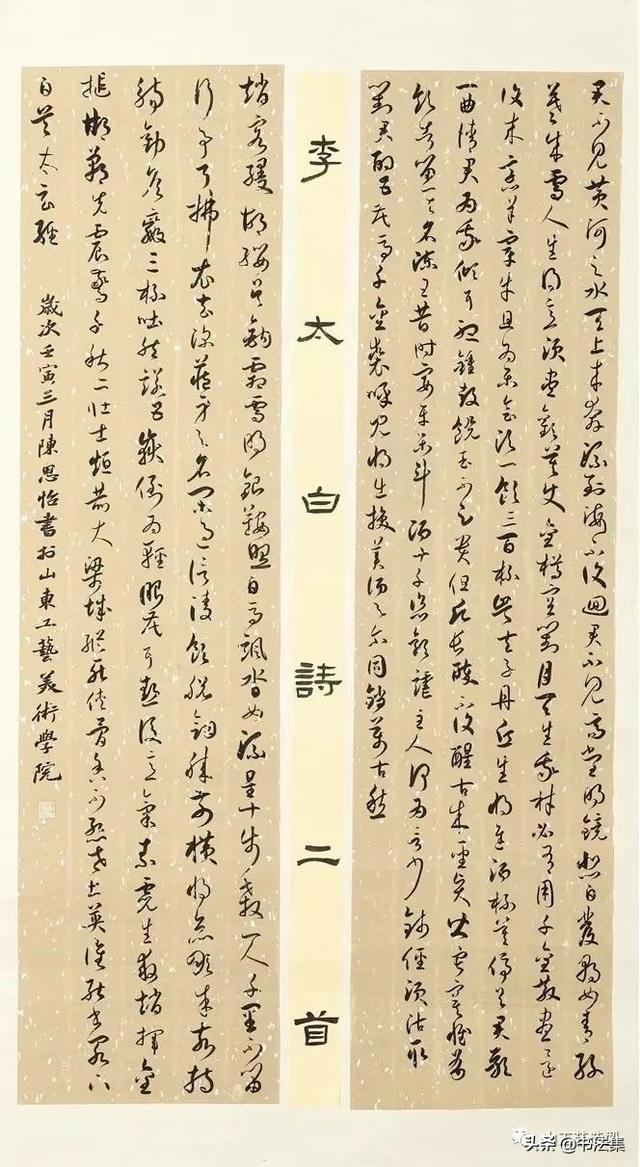 君不見黃河之水天上來奔流到海不復迴君不見高堂明鏡悲白髮朝如青絲
暮成雪人生得意須盡歡莫使金樽空對月天生我材必有用千金散盡還
復來烹羊宰牛且為樂會須一飲三百杯岑夫子丹丘生將進酒杯莫停與君歌
一曲請君為我傾耳聽鐘鼓饌玉不足貴但願長醉不復醒古來聖賢皆寂寞惟有
飲者留其名陳王昔時宴平樂斗酒十千恣歡謔主人何為言少錢徑須沽取
對君酌五花馬千金裘呼兒將出換美酒與爾同銷萬古愁
李太白詩二首
趙客縵胡纓吳鉤霜雪明銀鞍照白馬颯沓如流星十步殺一人千里不留
行事了拂衣去深藏身與名閑過信陵飲脫劍膝前橫將炙啖朱亥持
觴勸侯嬴三杯吐然諾五嶽倒為輕眼花耳熱後意氣素霓生救趙揮金
槌邯鄲先震驚千秋二壯士烜赫大梁城縱死俠骨香不慙世上英誰能書閣下
白首太玄經
歲次壬寅三月陳思怡書於山東工藝美術學院
头条 @书法集